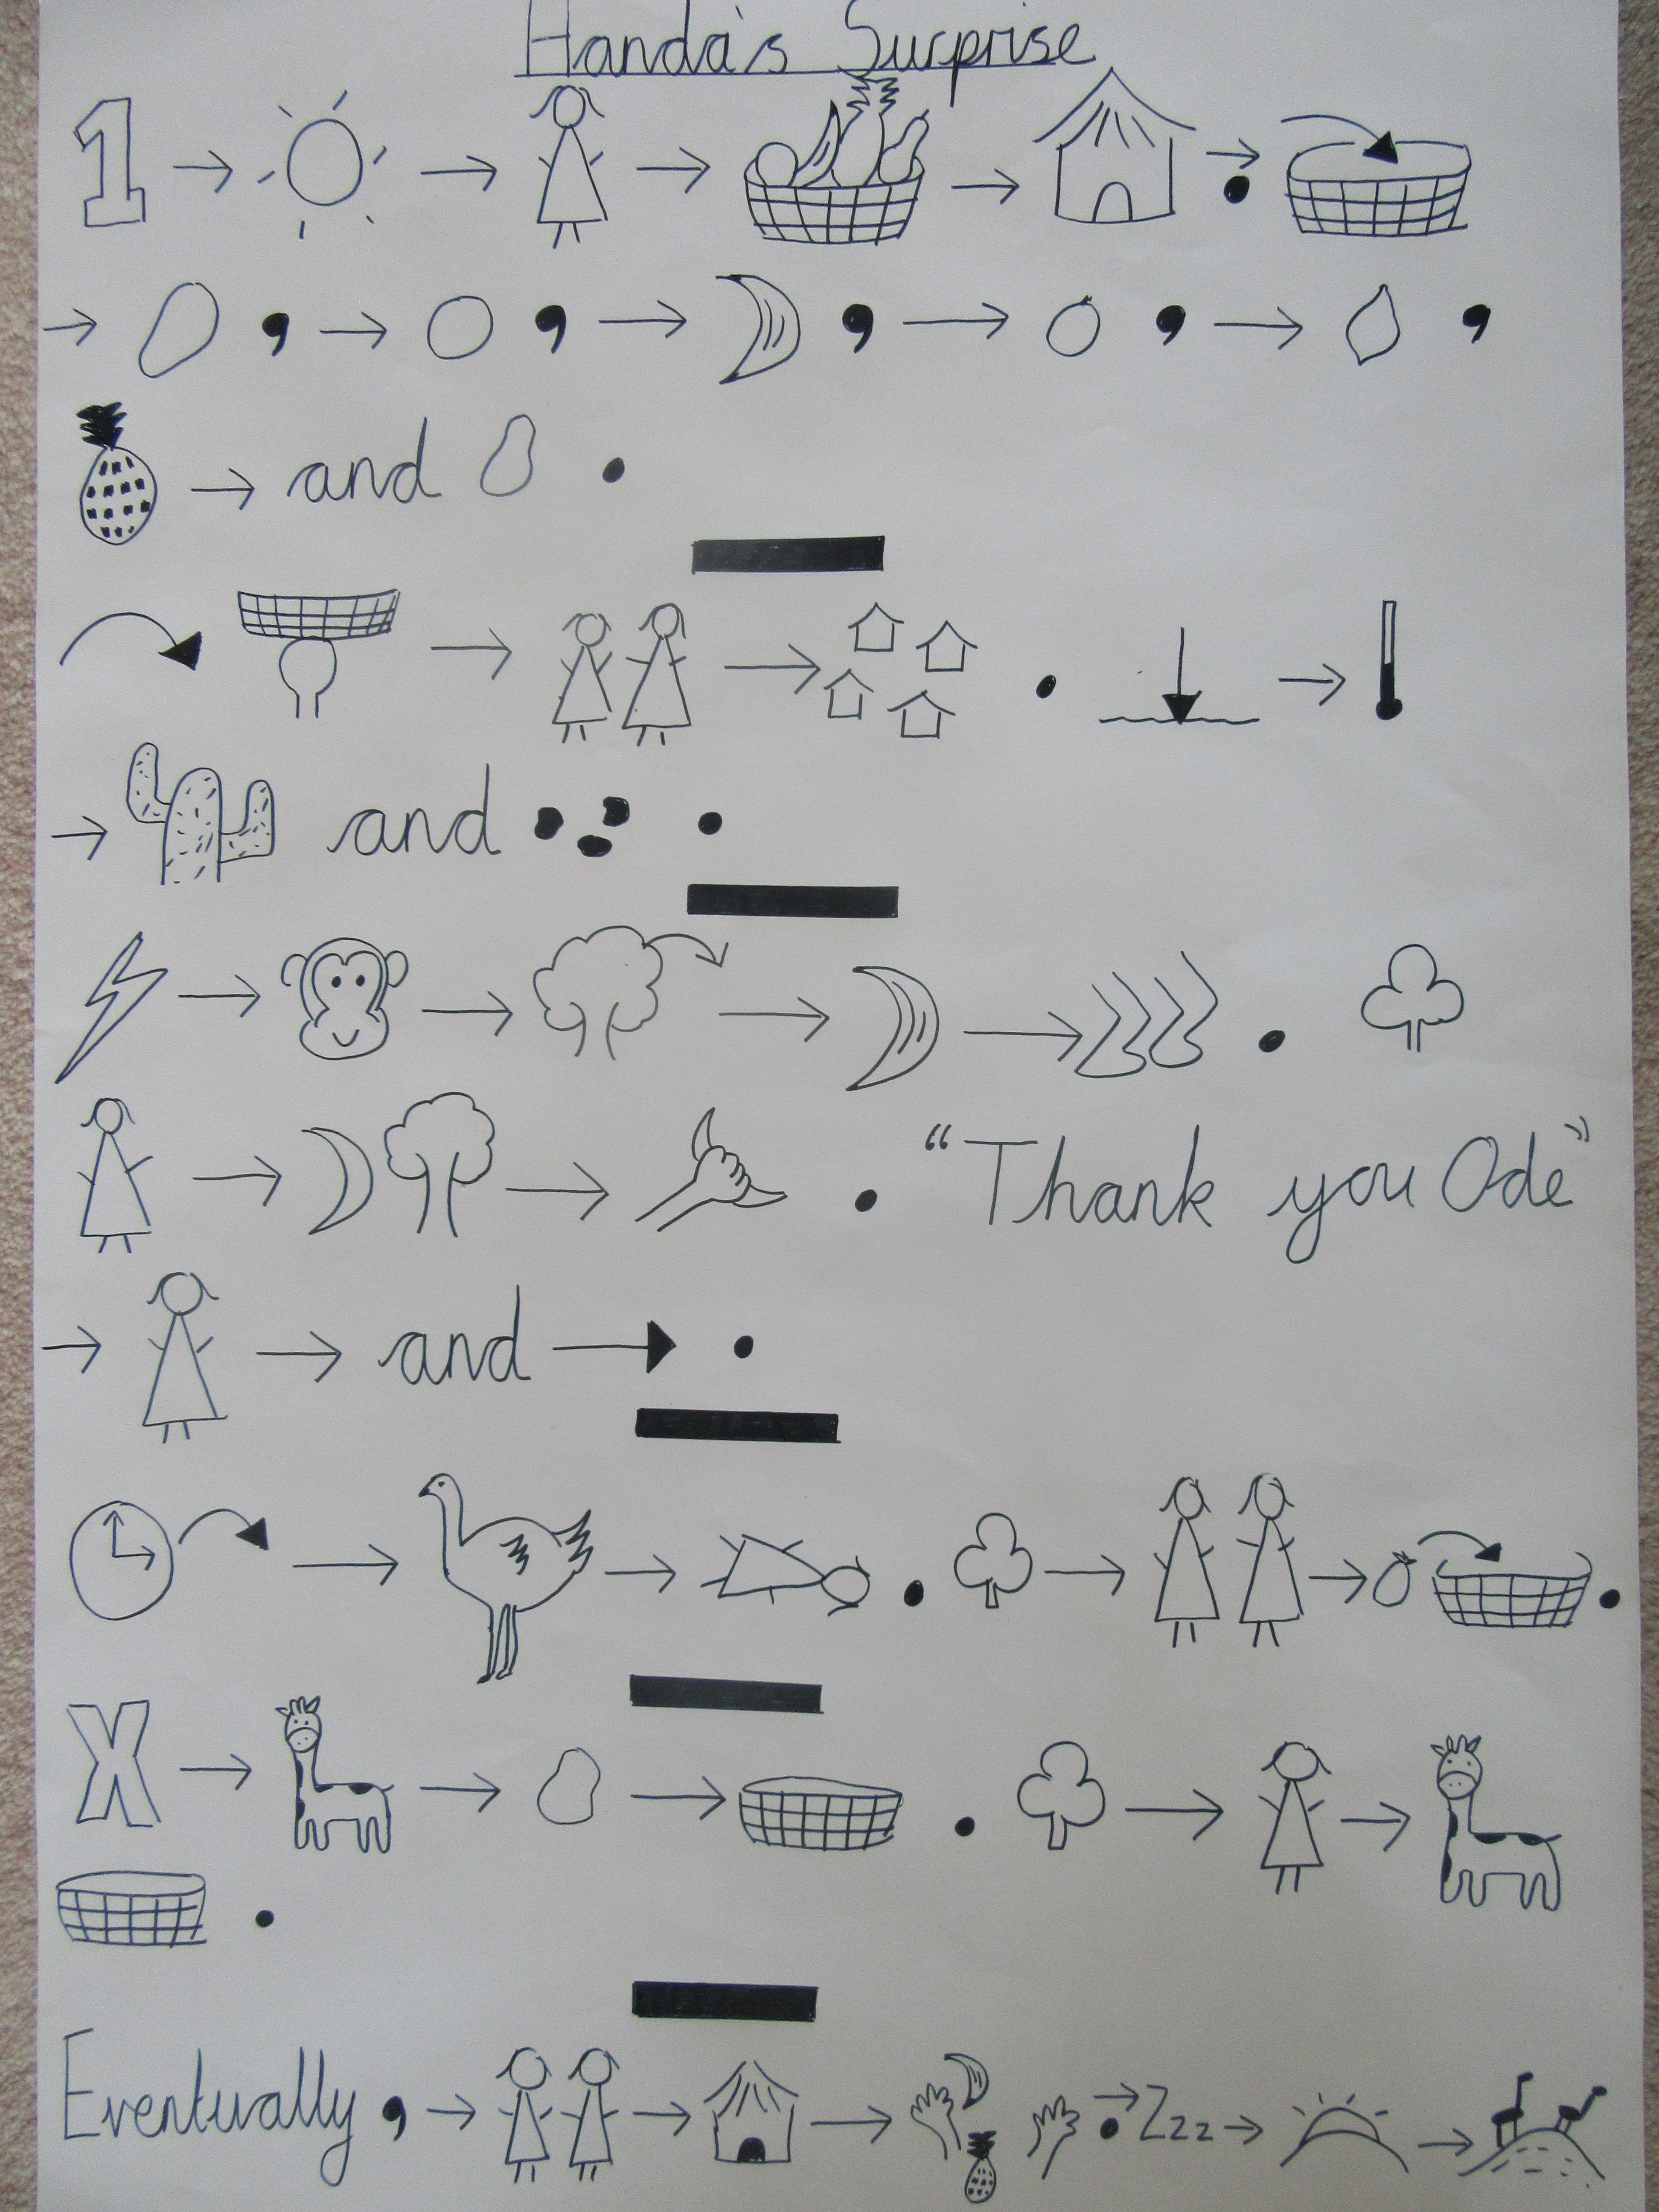 Handa's Surprise
1
, , , , ,
and .
.
and .
.
. "Thank you Ode"
and .
. .
X .
.
Eventually, . Zzz